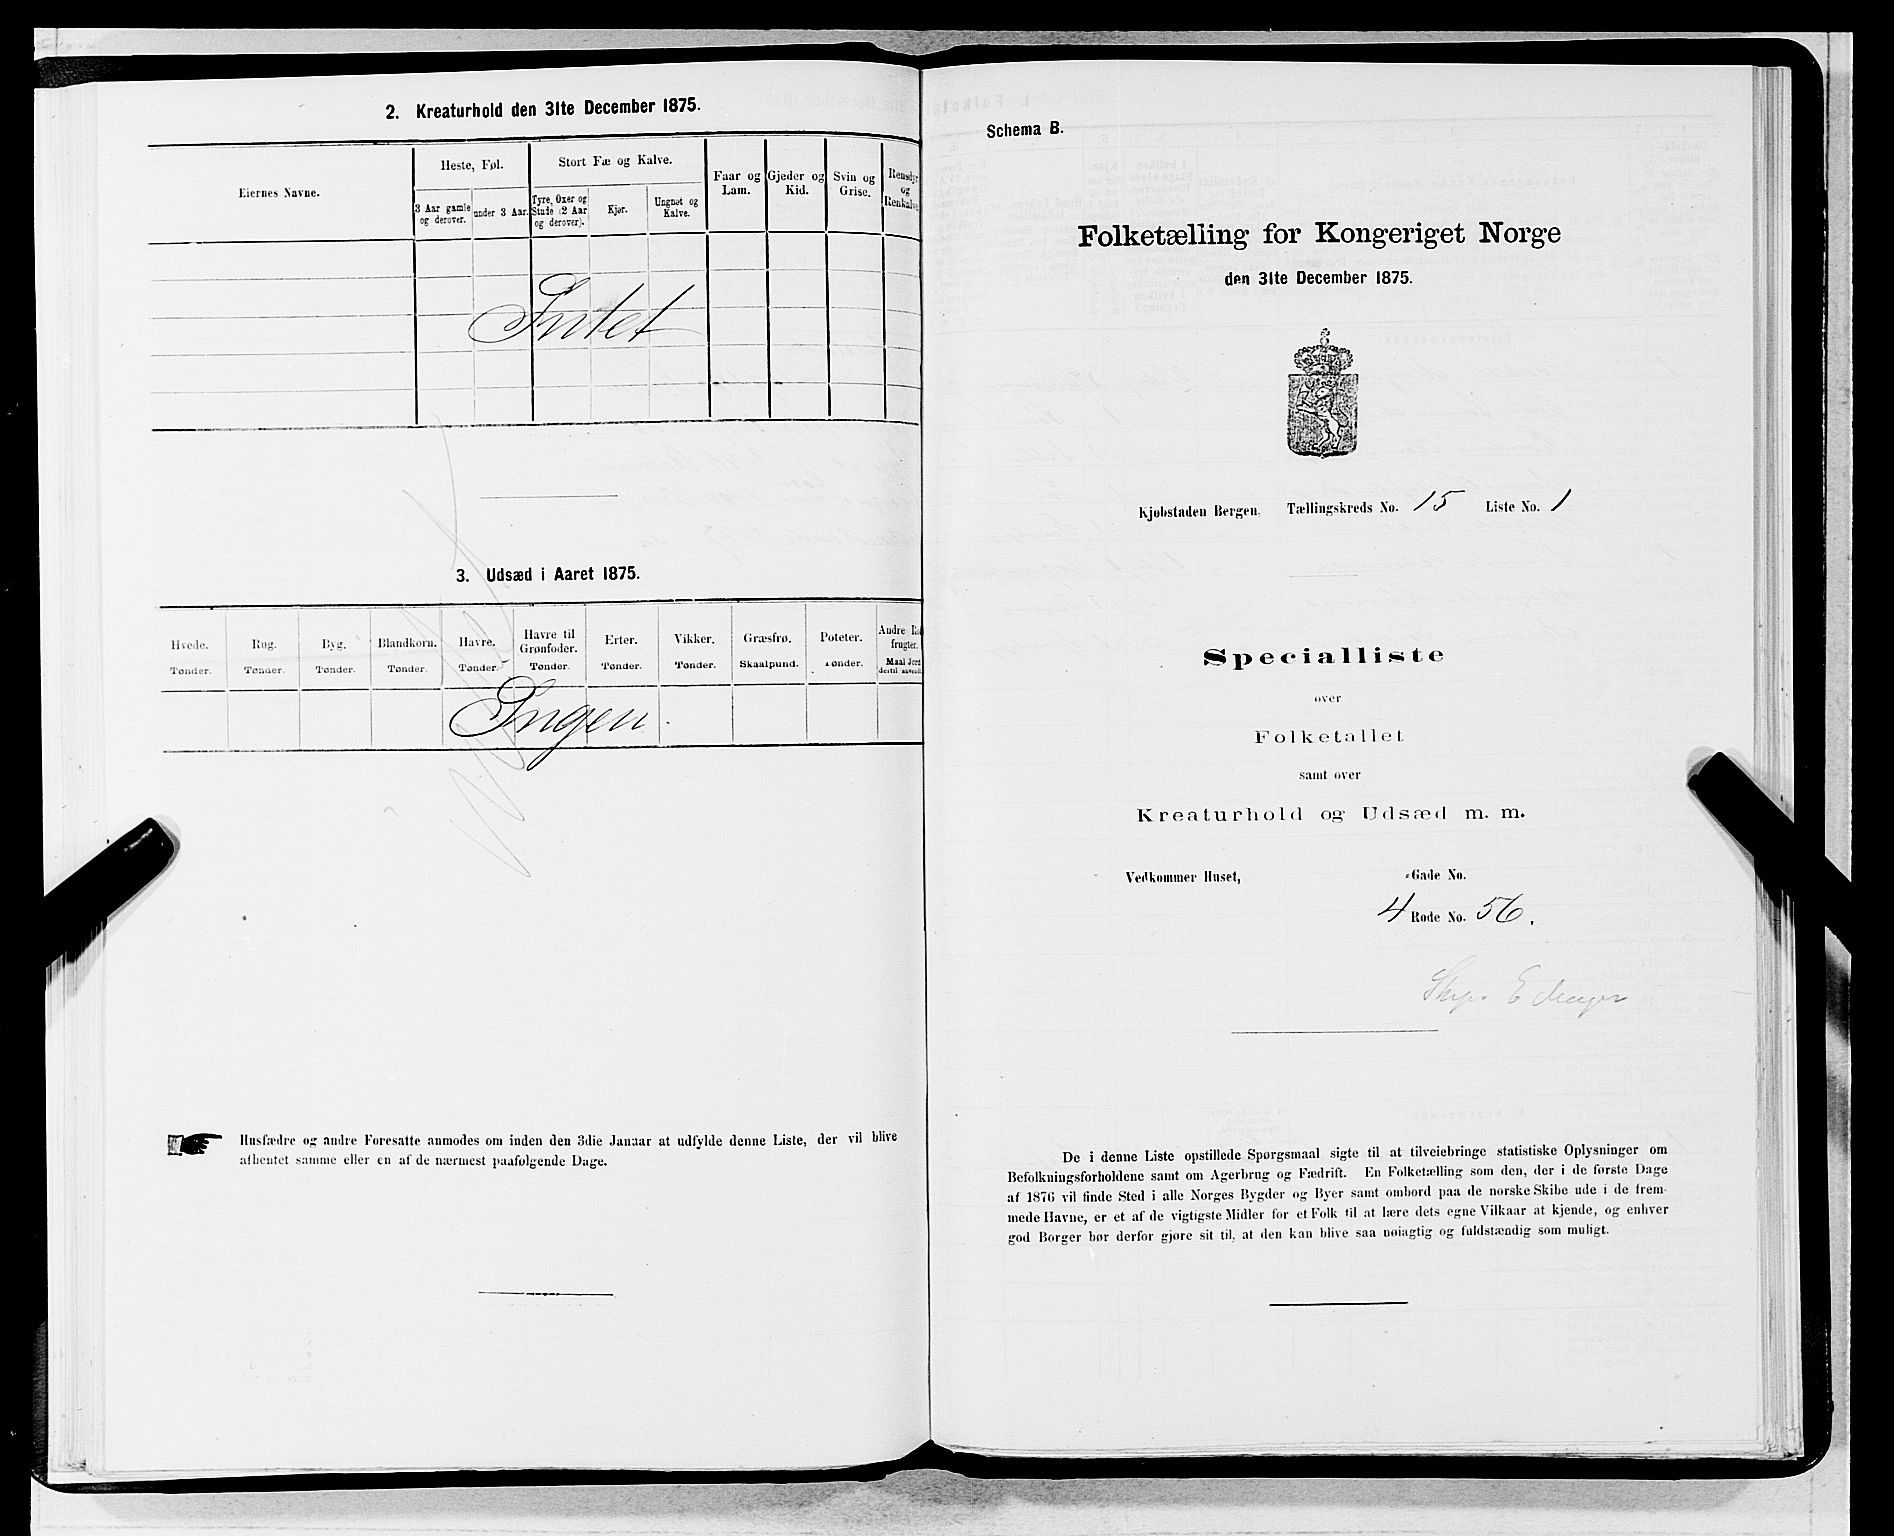 2. Kreaturhold den 31te December 1875.
Eiernes Navne.
Heste, Føl.
3 Aar gamle og derover.
under 3 Aar.
Stort Fæ og Kalve.
Tyre, Oxer og Stude (2 Aar og derover).
Kjør.
Ungnøt og Kalve.
Faar og Lam.
Gjeder og Kid.
Svin og Grise.
Rensdyr og Renkalve
Intet
3. Udsæd i Aaret 1875.
Hvede. Rug. Byg. Blandkorn. Havre. Havre til Grønfoder. Erter. Vikker. Græsfrø. Poteter. Andre frugter.
Tønder. Tønder. Tønder. Tønder. Tønder. Tønder. Tønder. Tønder. Skaalpund. Tønder. Maal Jord
Ingen.
Husfædre og andre Foresatte anmodes om inden den 3die Januar at udfylde denne Liste, der vil blive
afhentet samme eller en af de nærmest paafølgende Dage.
Schema B.
Folketælling for Kongeriget Norge
den 31te December 1875.
Kjøbstaden Bergen. Tællingskreds No. 15 Liste No. 1
Specialliste
over
Folketallet
samt over
Kreaturhold og Udsæd m. m.
Vedkommer Huset, -Gade No.
4 Rode No. 56.
De i denne Liste opstillede Spørgsmaal sigte til at tilveiebringe statistiske Oplysninger om
Befolkningsforholdene samt om Agerbrug og Fædrift. En Folketælling som den, der i de første Dage
af 1876 vil finde Sted i alle Norges Bygder og Byer samt ombord paa de norske Skibe ude i de frem-
mede Havne, er et af de vigtigste Midler for et Folk til at lære dets egne Vilkaar at kjende, og enhver
god Borger bør derfor gjøre sit til, at den kan blive saa nøiagtig og fuldstændig som muligt.